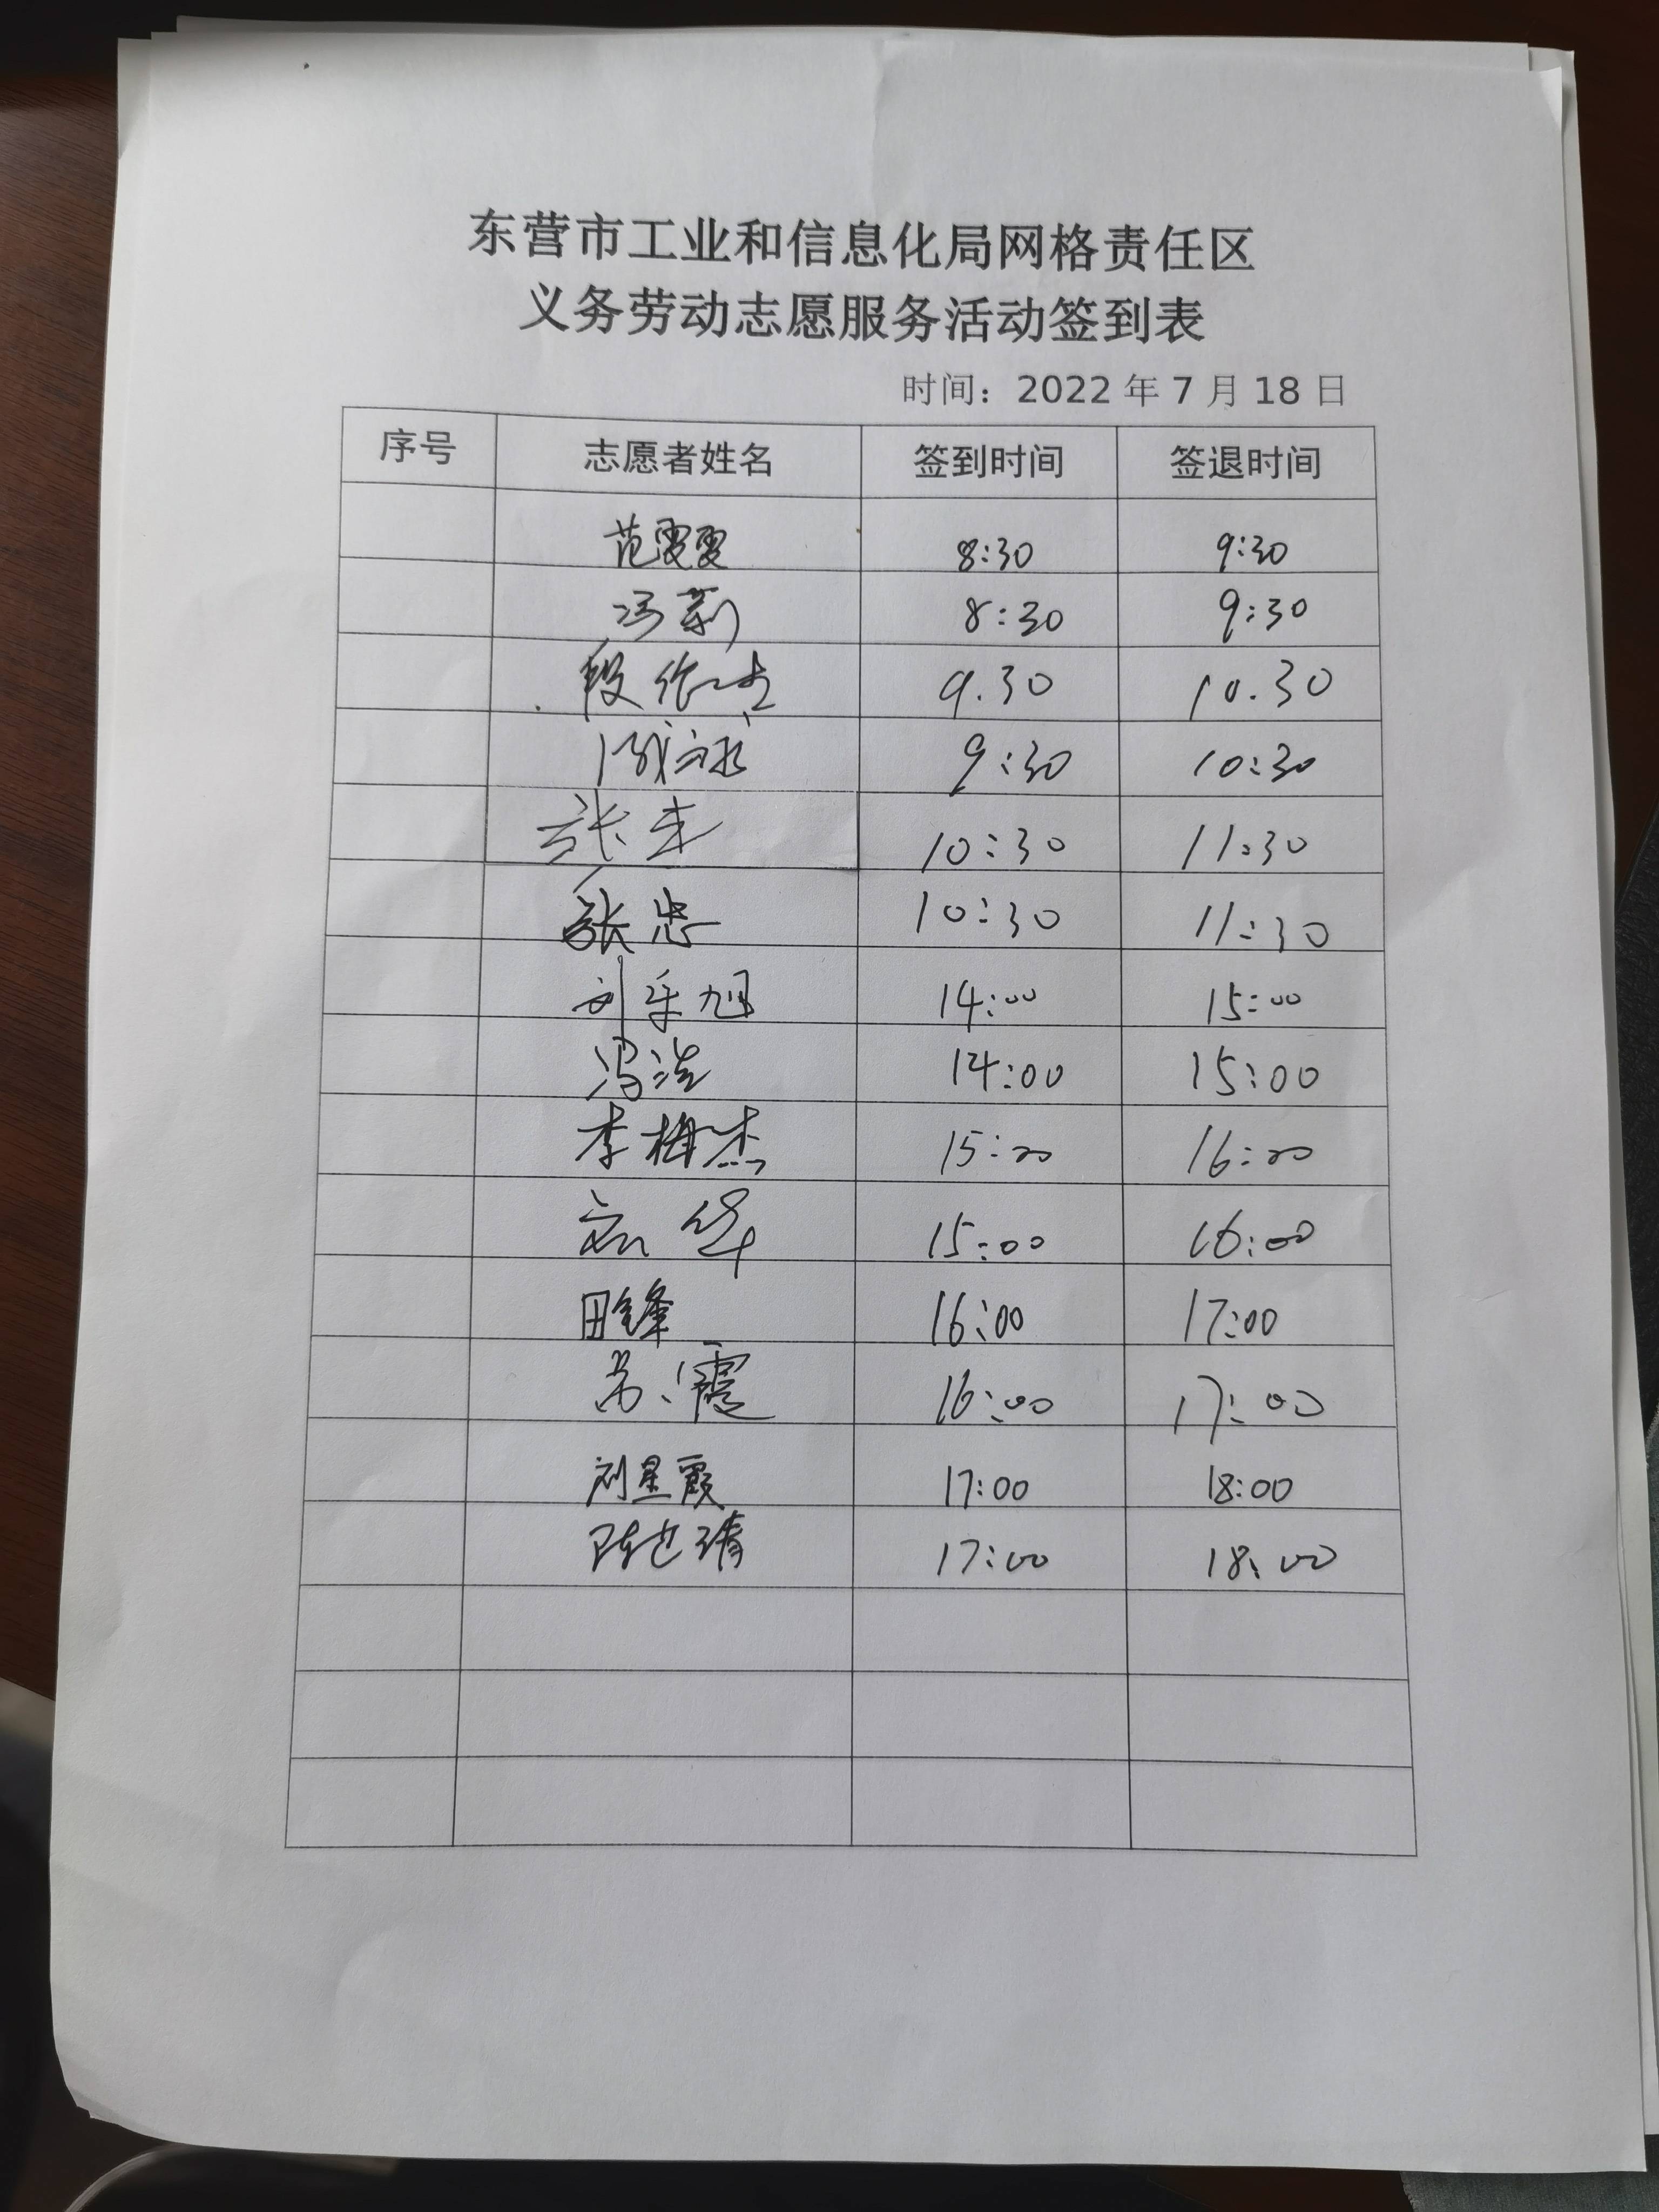 东营市工业和信息化局网格责任区
义务劳动志愿服务活动签到表
时间：2022年7月18日
序号 志愿者姓名 签到时间 签退时间
范雯雯 8:30 9:30
冯莉 8:30 9:30
段 9.30 10.30
9:30 10:30
张 10:30 11:30
张忠 10:30 11:30
刘乐旭 14:00 15:00
冯浩 14:00 15:00
李梅杰 15:00 16:00
15:00 16:00
田锋 16:00 17:00
苏霞 16:00 17:00
刘星霞 17:00 18:00
陈 17:00 18:00